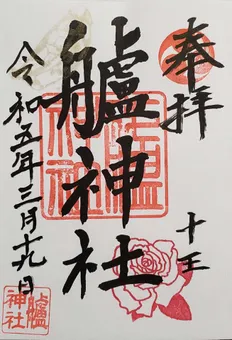 奉拝
十王
艫神社
令和五年三月十九日
艫神社